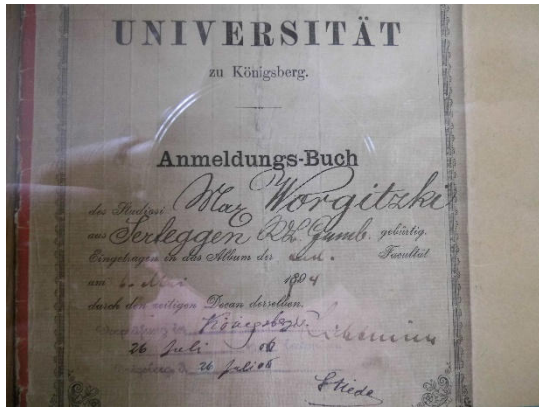 UNIVERSITÄT
zu Königsberg.
Anmeldungs-Buch
des Studiosi Max Worgitzki
aus Serteggen Gumb. gebürtig.
Eingetragen in das Album der Facultät
am 6. Mai 1904
durch den zeitigen Decan derselben.
Königsberg
26 Juli 06
26 Juli 06